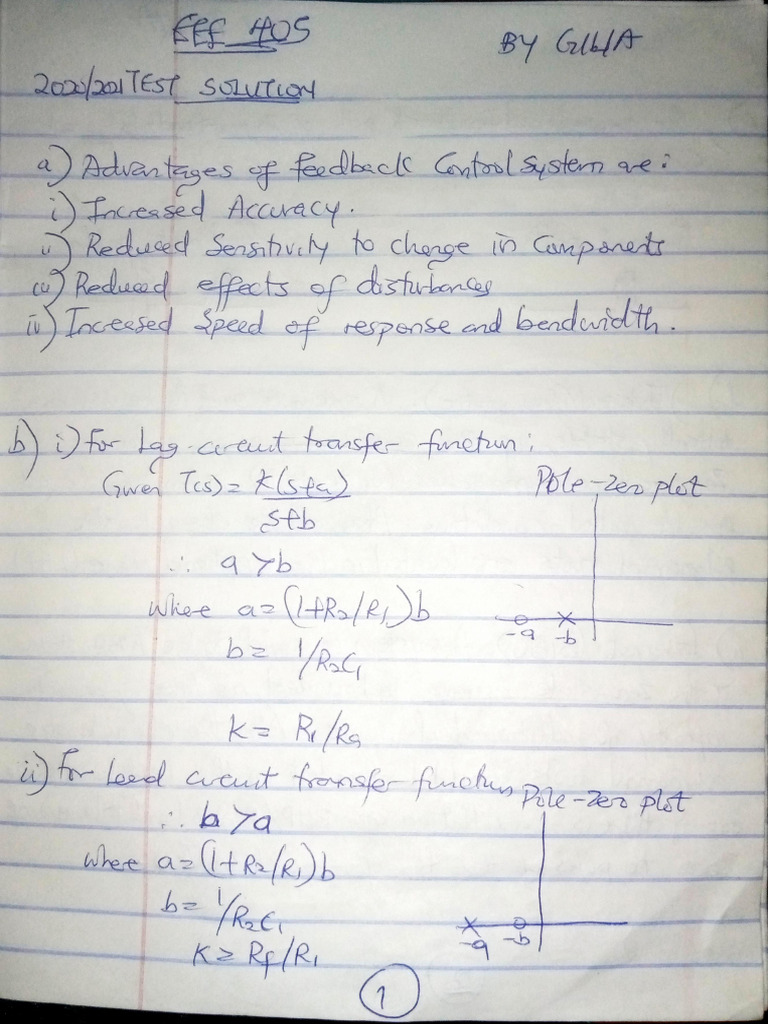 EEE 405
BY G/b/A
2020/2021 TEST SOLUTION
a) Advantages of feedback Control system are:
i) Increased Accuracy.
ii) Reduced Sensitivity to change in Components
iii) Reduced effects of disturbances
iv) Increased Speed of response and bandwidth.
b) i) for Lag circuit transfer function;
Given T(s) = K(s+a)
s+b
Pole-zero plot
∴ a > b
Where a = (1+R2/R1)b
-a -b
b = 1/R2C1
K = R1/Ra
ii) for Lead circuit transfer function
Pole-zero plot
∴ b > a
Where a = (1+R2/R1)b
b = 1/R2C1
-a -b
K = Rf/R1
1